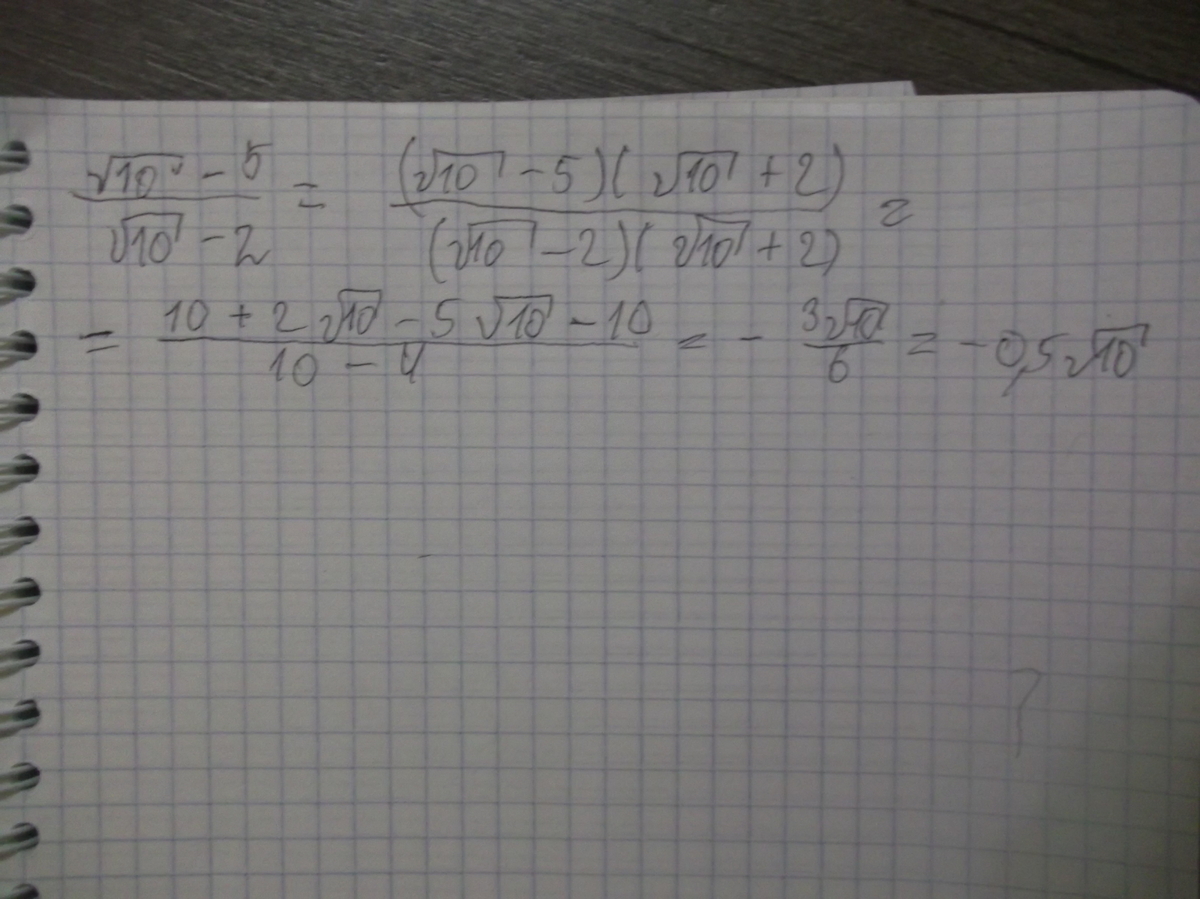 (√10 - 5)/(√10 - 2) = ((√10 - 5)(√10 + 2))/((√10 - 2)(√10 + 2)) =
= (10 + 2√10 - 5√10 - 10)/(10 - 4) = - 3√10/6 = -0,5√10